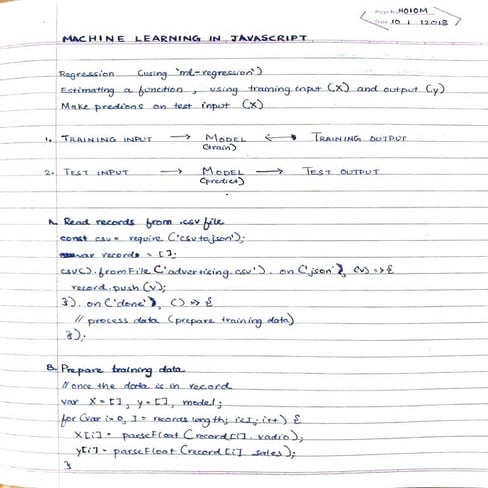 Page No. H010M
Date 10 1 12018
MACHINE LEARNING IN JAVASCRIPT
Regression (using 'ml-regression')
Estimating a function, using training input (X) and output (y)
Make predions on test input (X)
1. TRAINING INPUT → MODEL ← TRAINING OUTPUT
(train)
2. TEST INPUT → MODEL → TEST OUTPUT
(predict)
A. Read records from .csv file
const csv = require ('csvtojson');
var records = [];
csv().fromFile('advertising.csv').on('json', (v) => {
record.push(v);
}).on('done', () => {
// process data (prepare training data)
});
B. Prepare training data
// once the data is in record
var X = [], y = [], model;
for (var i=0, I= records.length; i<I; i++) {
X[i] = parseFloat (record[i].radio);
y[i] = parseFloat (record[i].sales);
}